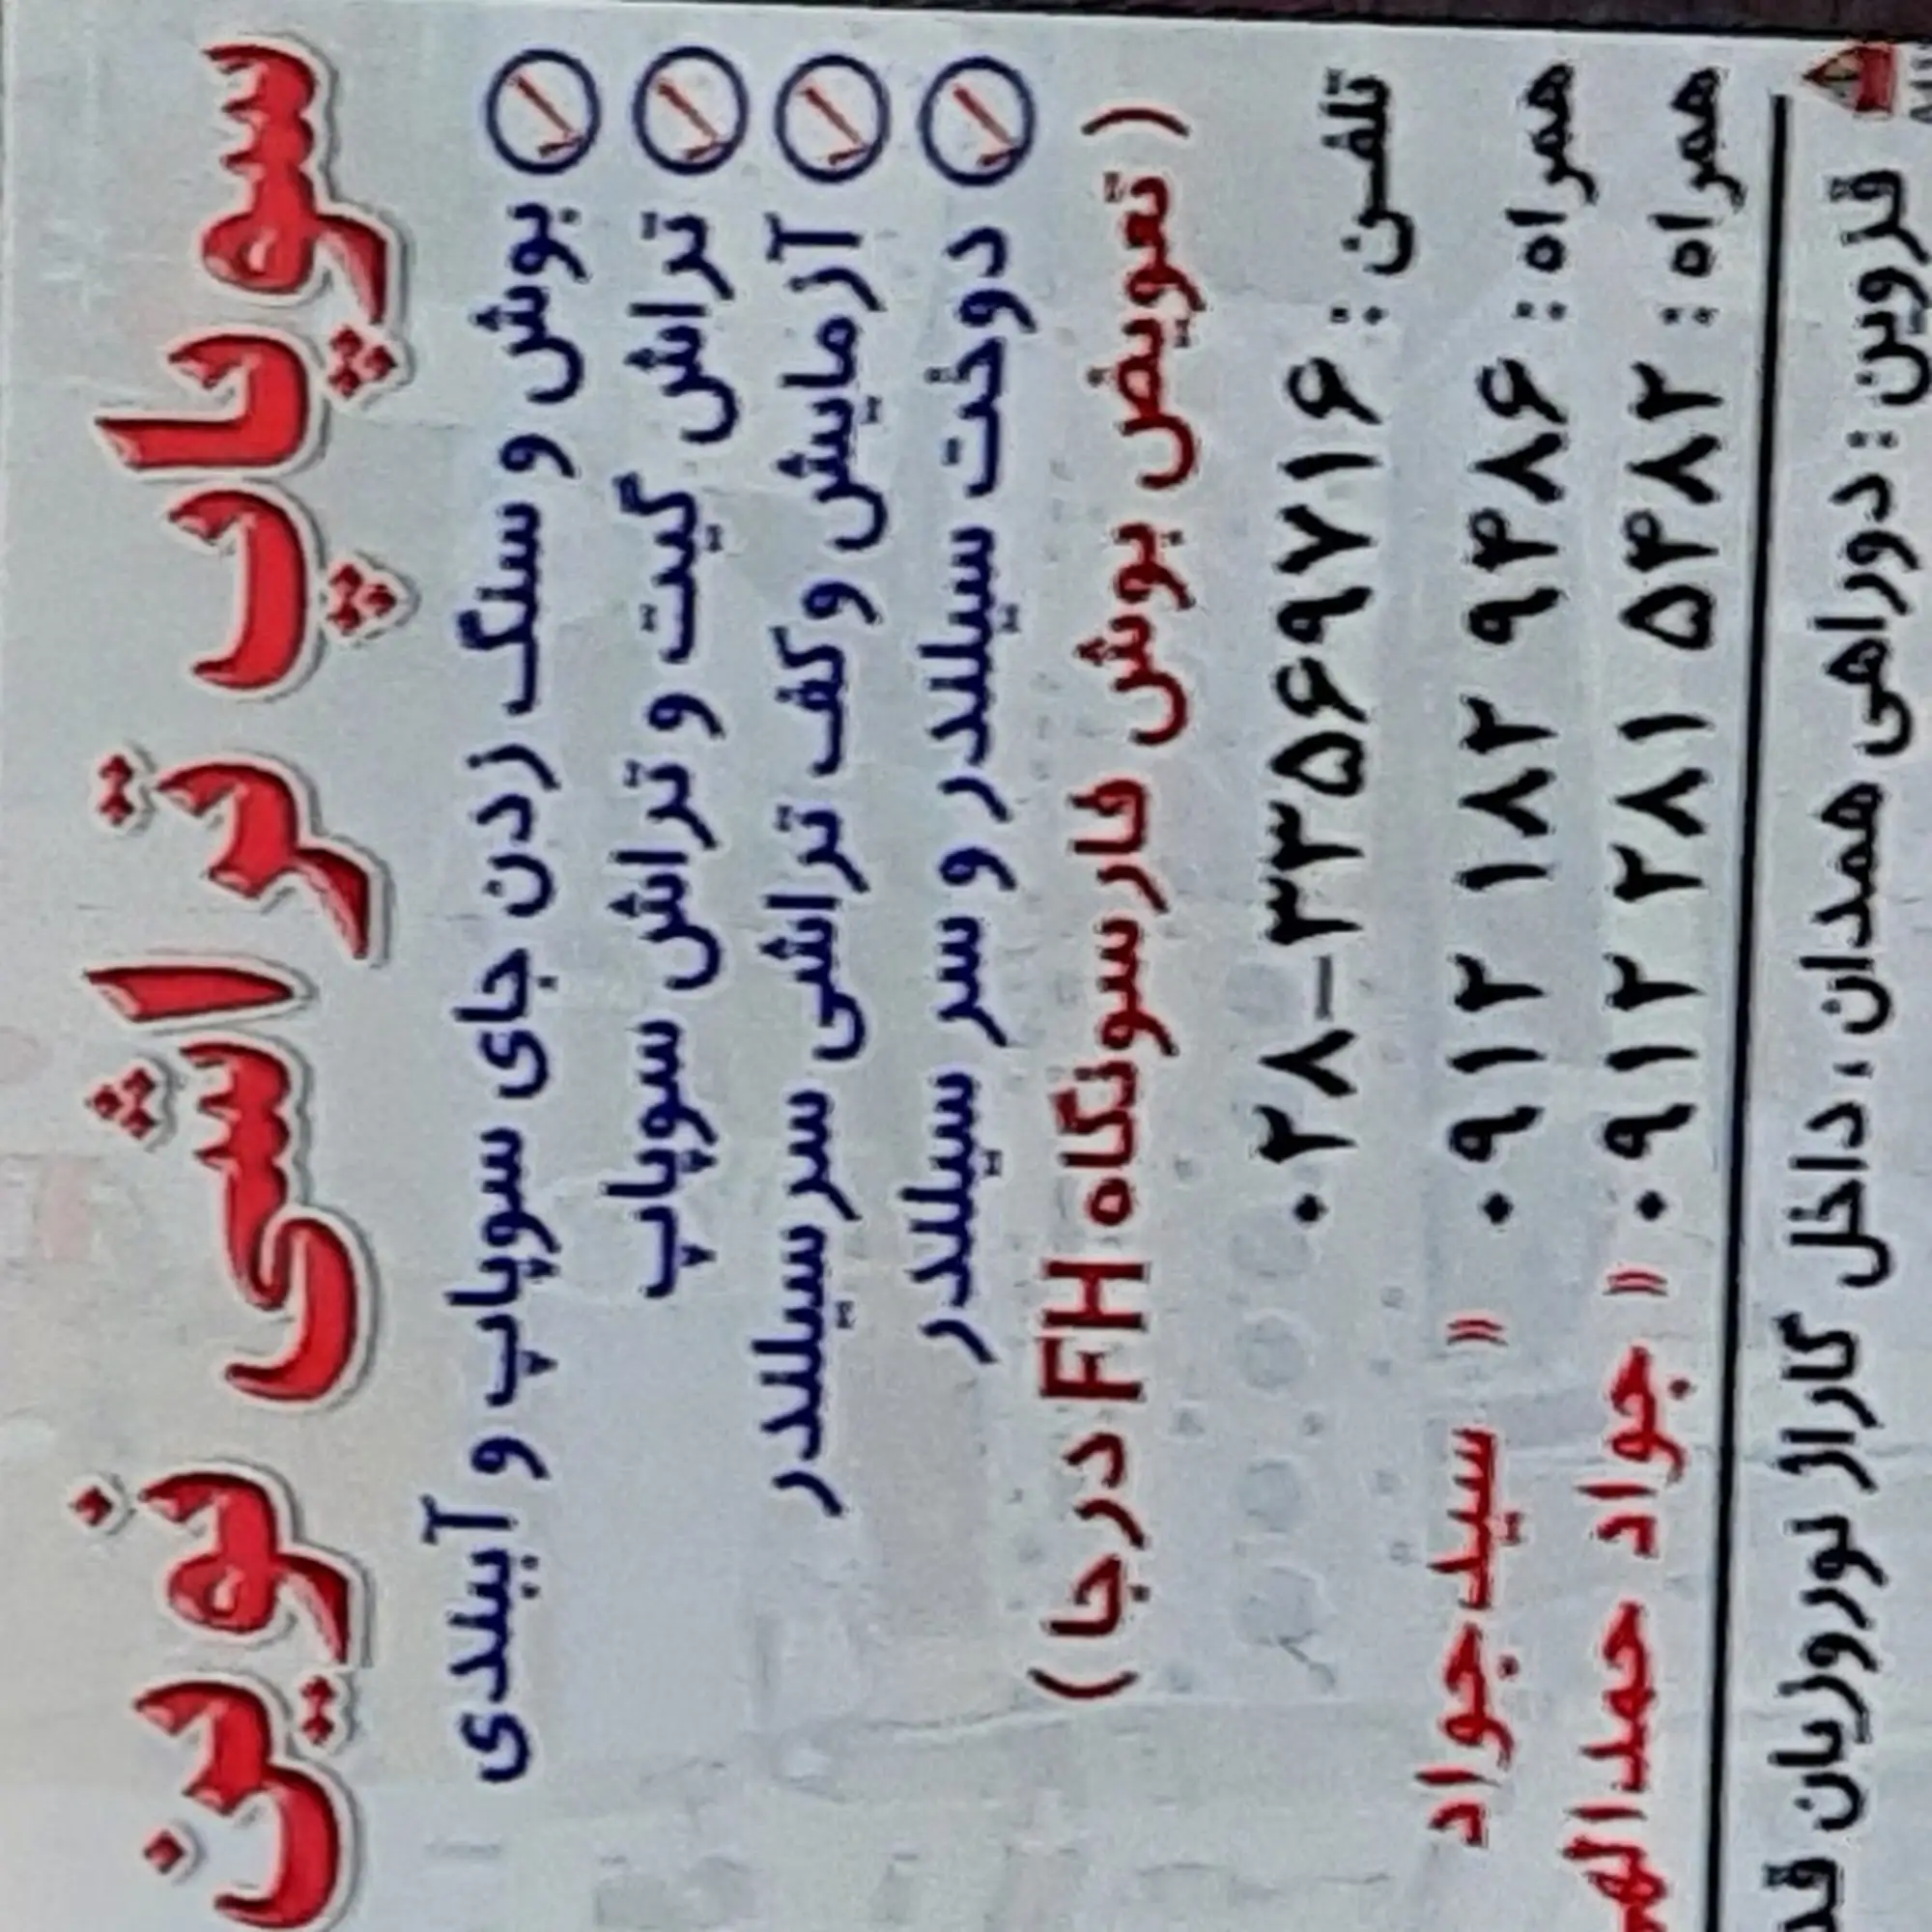 سوپاپ تراشی نوین
بوش و سنگ زدن جای سوپاپ و آببندی
تراش گیت و تراش سوپاپ
آزمایش و کف تراشی سر سیلندر
دوخت سیلندر و سر سیلندر
( تعویض بوش فارسونگاه FH درجا )
تلفن : ۰۲۸-۳۳۵۶۹۷۱۶
همراه : ۰۹۱۲ ۱۸۲ ۹۴۸۶ « سیدجواد
همراه : ۰۹۱۲ ۲۸۱ ۵۴۸۲ « جواد
قزوین : دوراهی همدان ، داخل گاراژ نوروزیان